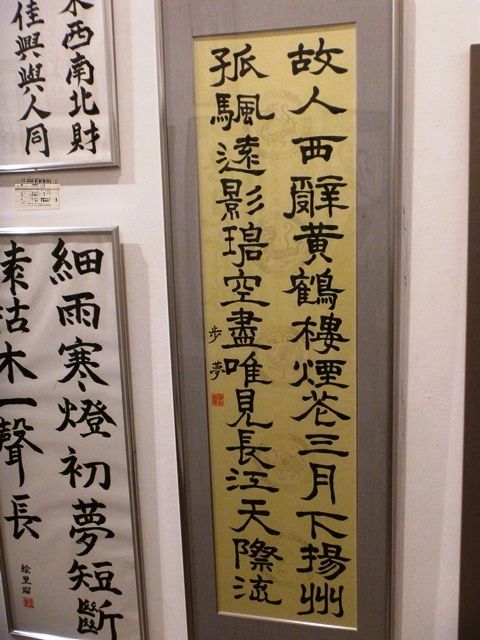 故人西辭黄鶴樓煙花三月下揚州
孤颿遠影碧空盡唯見長江天際流
歩夢
西南北財
佳興與人同
細雨寒燈初夢短斷
枯木一聲長